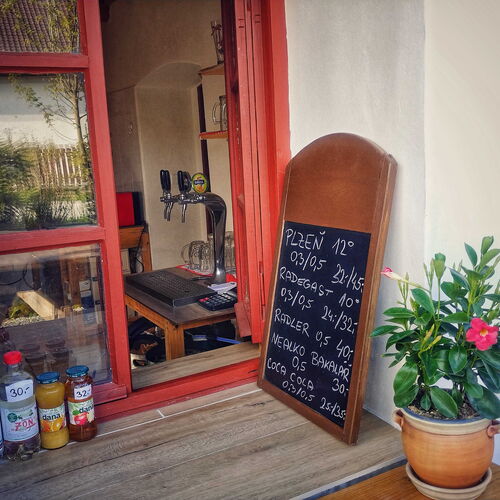 PLZEŇ 12°
0,3/0,5 29,-/45,-
RADEGAST 10°
0,3/0,5 24,-/32,-
RADLER 0,5 40,-
NEALKO BAKALÁŘ
0,5 30,-
COCA COLA
0,3/0,5 25,-/35,-
30,-
ZON
dana
32,-
dana